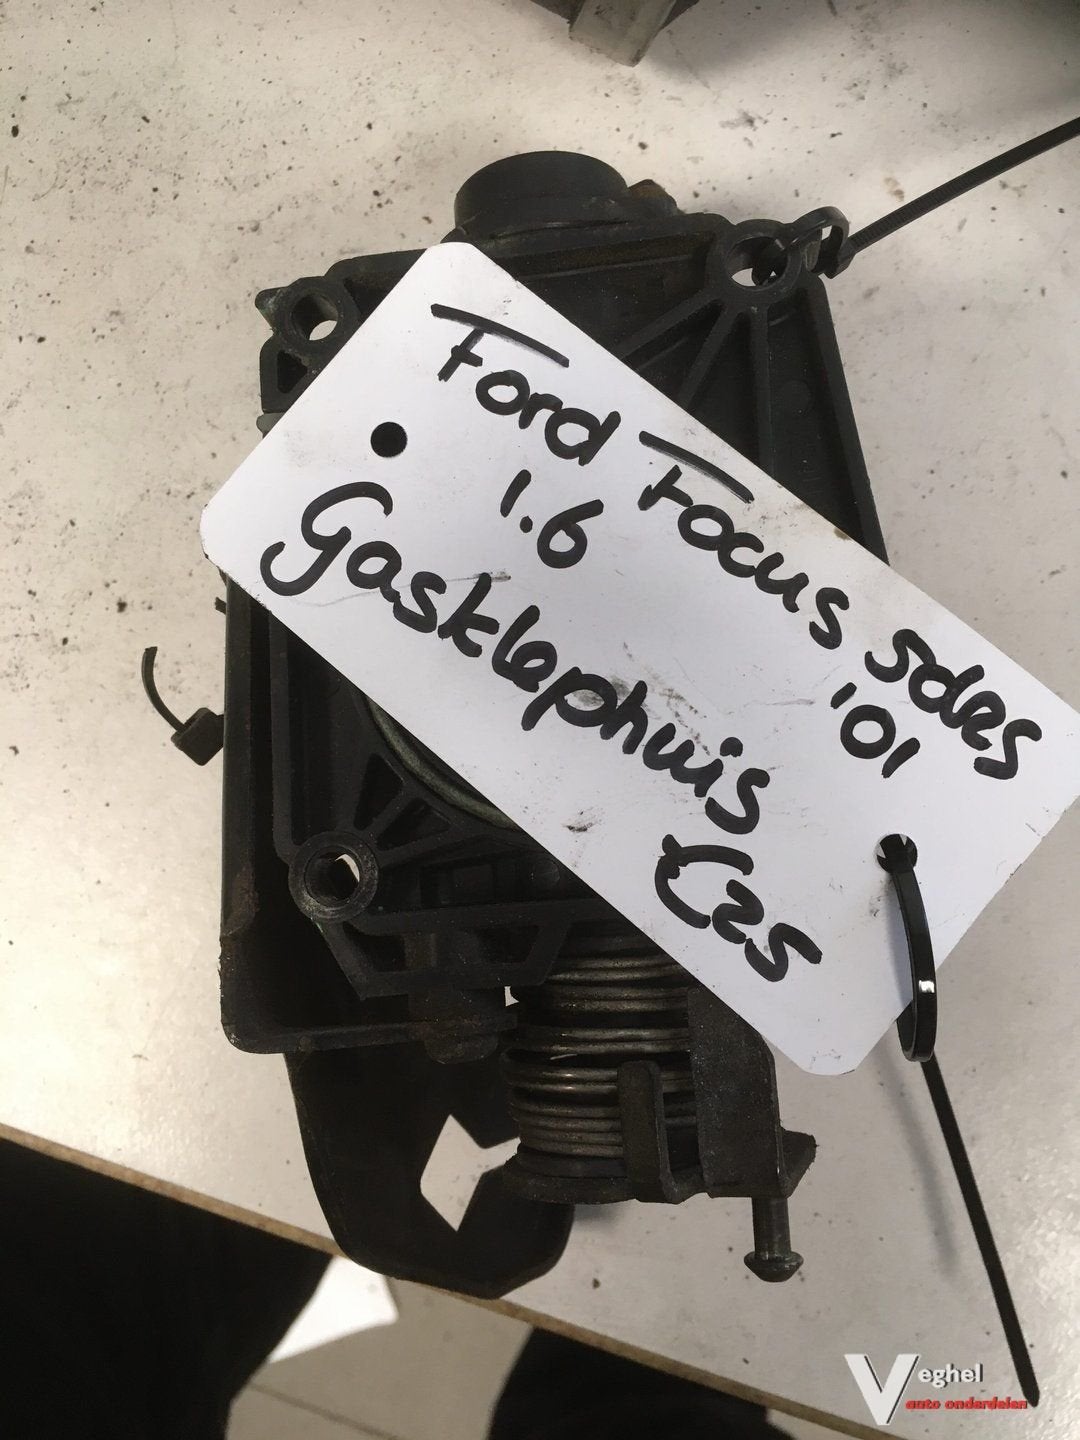 Ford Focus 5drs
1.6 '01
Gasklephuis
C25
Veghel
auto onderdelen